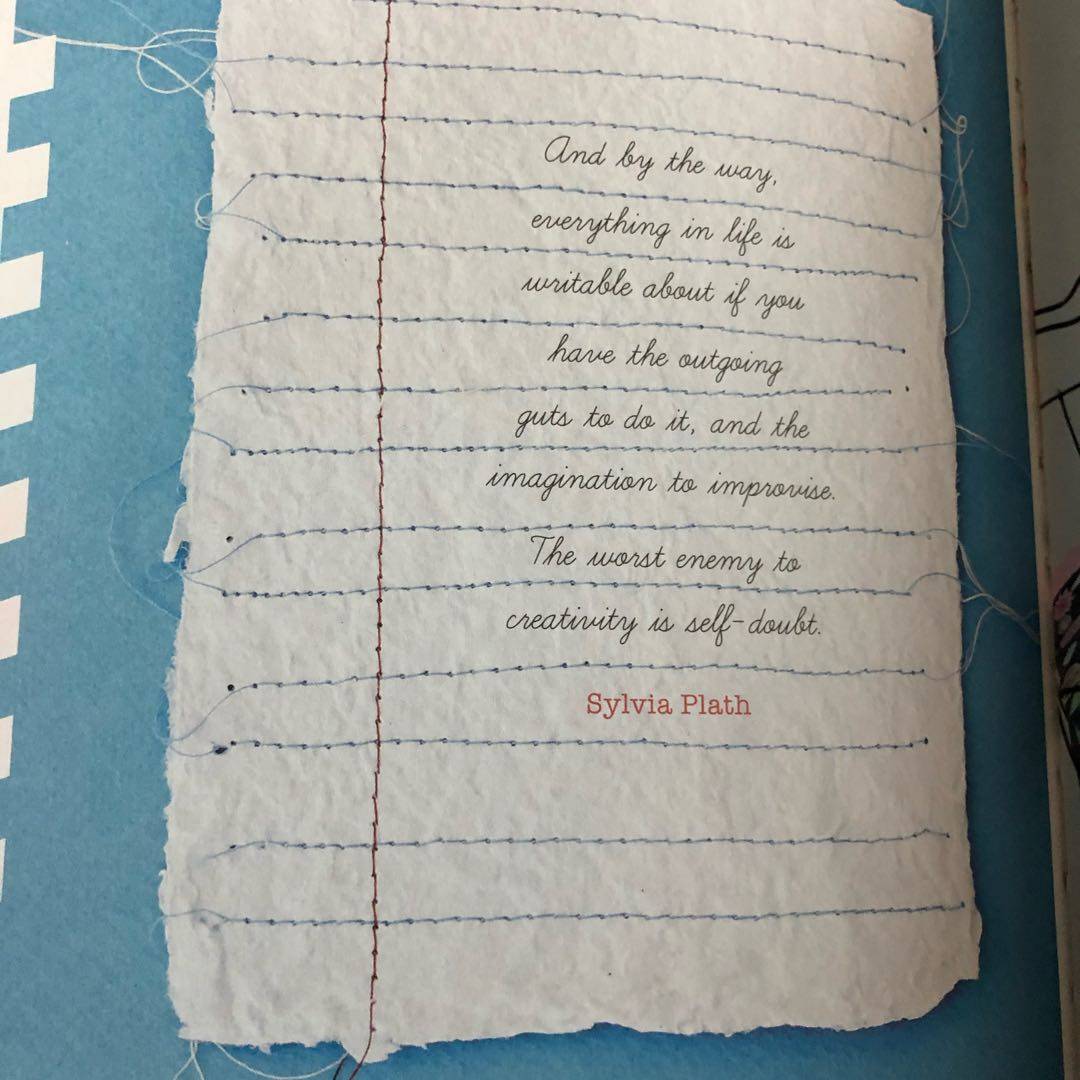 And by the way,
everything in life is
writable about if you
have the outgoing
guts to do it, and the
imagination to improvise.
The worst enemy to
creativity is self-doubt.
Sylvia Plath